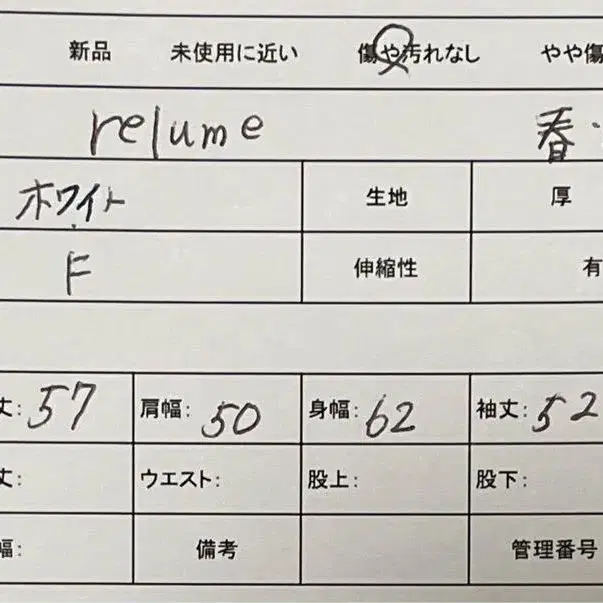 新品 未使用に近い 傷や汚れなし やや傷
relume 春・
ホワイト 生地 厚
F 伸縮性 有
丈: 57 肩幅: 50 身幅: 62 袖丈: 52
丈: ウエスト: 股上: 股下:
幅: 備考 管理番号